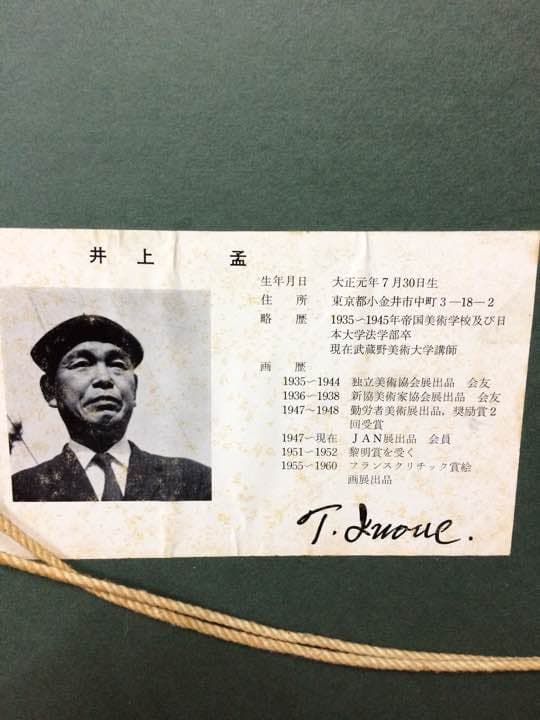 井上 孟
生年月日 大正元年7月30日生
住所 東京都小金井市中町3―18―2
略歴 1935~1945年帝国美術学校及び日
本大学法学部卒
現在武蔵野美術大学講師
画歴
1935~1944 独立美術協会展出品 会友
1936~1938 新協美術家協会展出品 会友
1947~1948 勤労者美術展出品,奨励賞2
回受賞
1947~現在 JAN展出品 会員
1951~1952 黎明賞を受く
1955~1960 フランスクリチック賞絵
画展出品
T. Inoue.